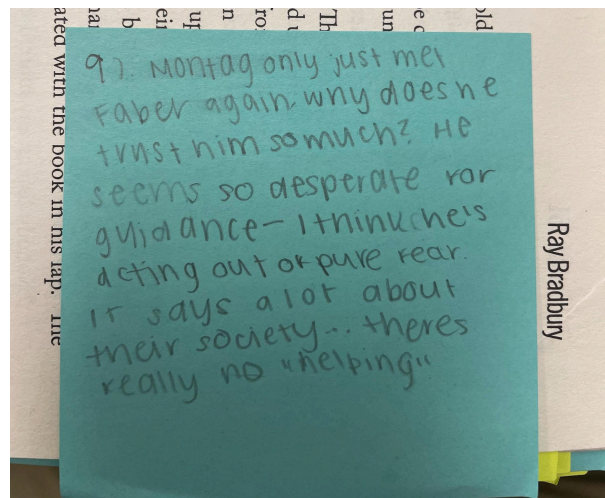 9). Montag only just met
Faber again, why does he
trust him so much? He
seems so desperate for
guidance- I think he's
acting out of pure fear.
It says a lot about
their society... theres
really no "helping"
Ray Bradbury
ated with the book in his lap. The
old
un
Th
d u
n
up
b